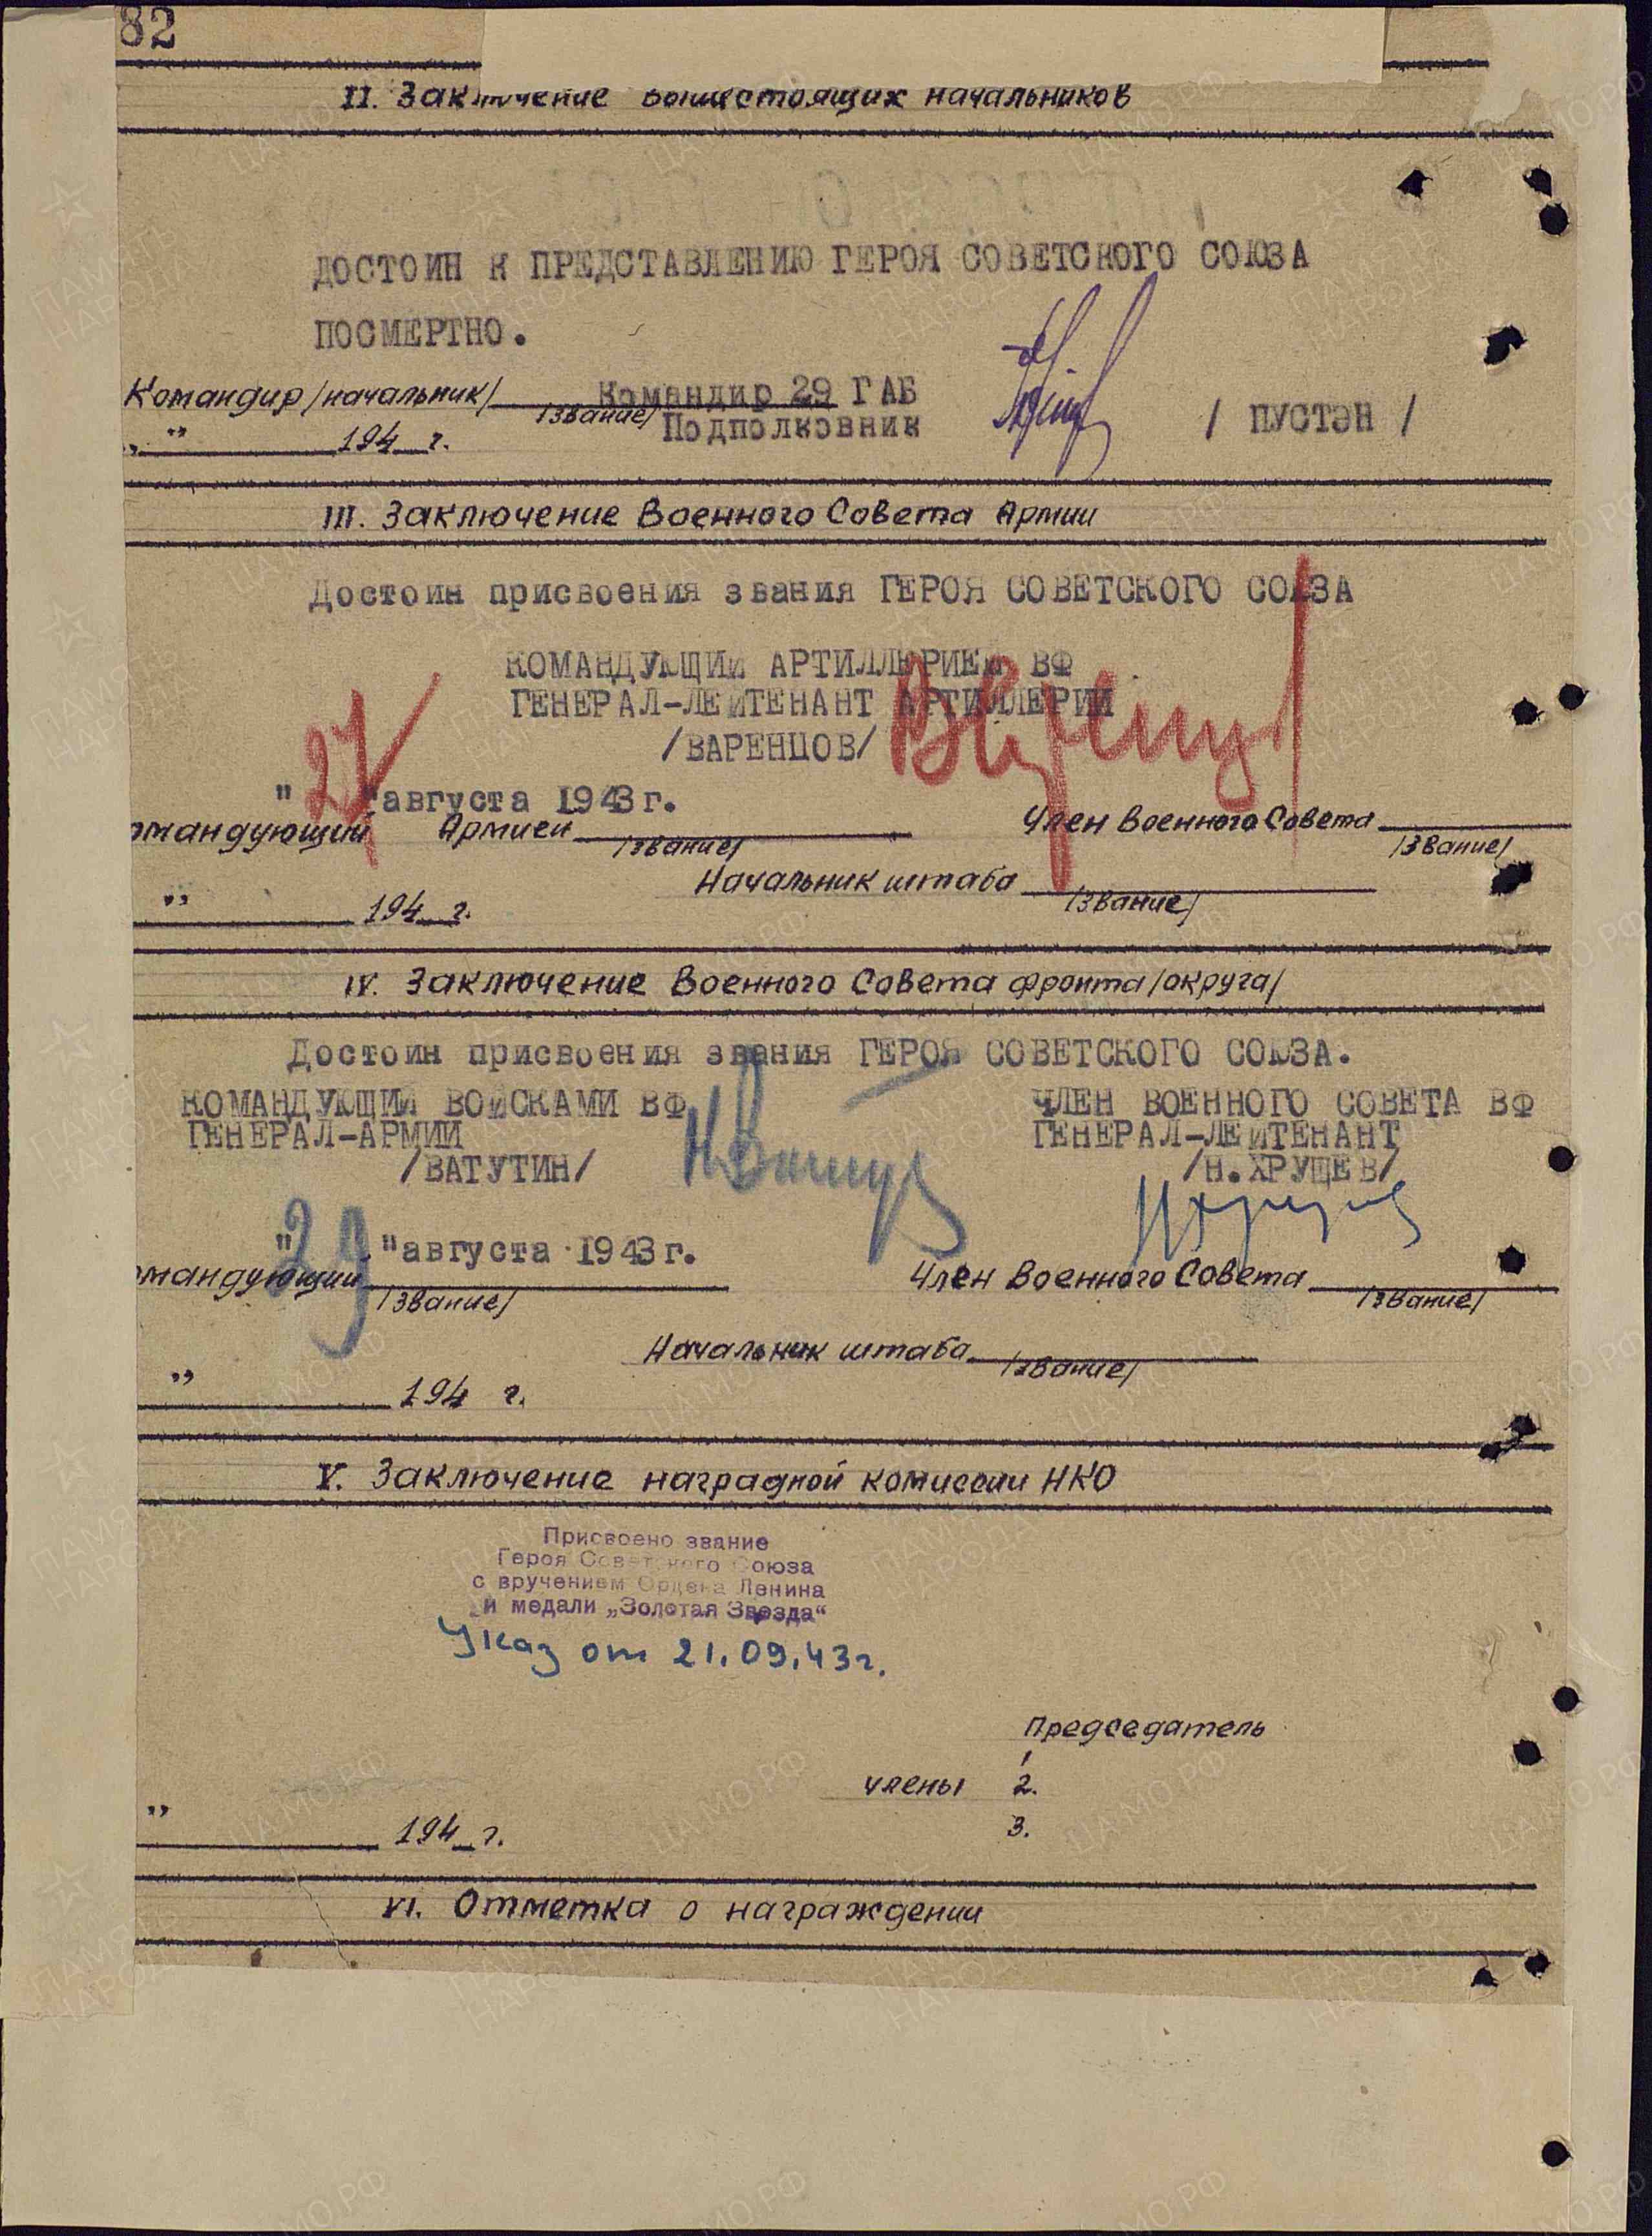 82
II. Заключение вышестоящих начальников
ДОСТОИН К ПРЕДСТАВЛЕНИЮ ГЕРОЯ СОВЕТСКОГО СОЮЗА
ПОСМЕРТНО.
Командир /начальник/ Командир 29 ГАБ
/звание/ Подполковник / ПУСТЭН /
„ " 194 г.
III. Заключение Военного Совета Армии
Достоин присвоения звания ГЕРОЯ СОВЕТСКОГО СОЮЗА
КОМАНДУЮЩИЙ АРТИЛЛЕРИЕЙ ВФ
ГЕНЕРАЛ-ЛЕЙТЕНАНТ АРТИЛЛЕРИИ
/ВАРЕНЦОВ/
"27"августа 1943г.
омандующий Армией Член Военного Совета
/звание/ /звание/
Начальник штаба
/звание/
" 194 г.
IV. Заключение Военного Совета фронта /округа/
Достоин присвоения звания ГЕРОЯ СОВЕТСКОГО СОЮЗА.
КОМАНДУЮЩИЙ ВОЙСКАМИ ВФ ЧЛЕН ВОЕННОГО СОВЕТА ВФ
ГЕНЕРАЛ-АРМИИ ГЕНЕРАЛ-ЛЕЙТЕНАНТ
/ВАТУТИН/ /Н.ХРУЩЕВ/
"29"августа 1943г.
омандующий Член Военного Совета
/звание/ /звание/
Начальник штаба
/звание/
" 194 г.
V. Заключение наградной комиссии НКО
Присвоено звание
Героя Советского Союза
с вручением Ордена Ленина
и медали „Золотая Звезда"
Указ от 21.09.43г.
Председатель
1
члены 2.
3.
" 194 г.
VI. Отметка о награждении